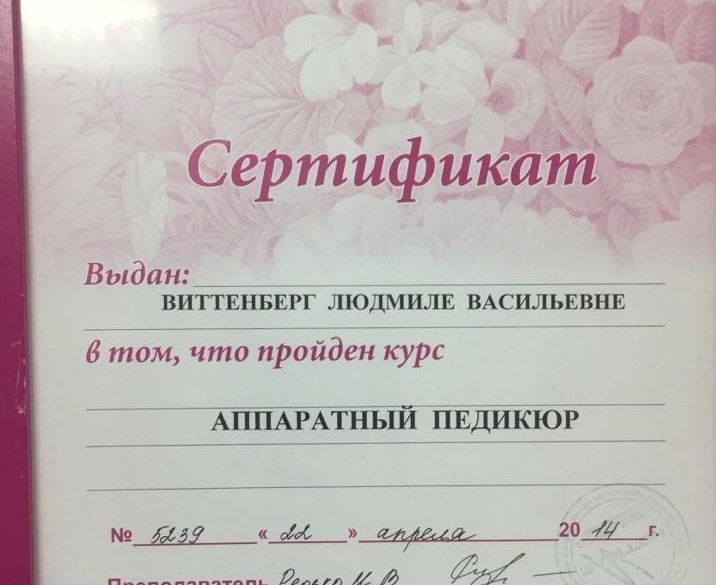 Сертификат
Выдан:
ВИТТЕНБЕРГ ЛЮДМИЛЕ ВАСИЛЬЕВНЕ
в том, что пройден курс
АППАРАТНЫЙ ПЕДИКЮР
№ 5239 « 22 » апреля 20 14 г.
Преподаватель